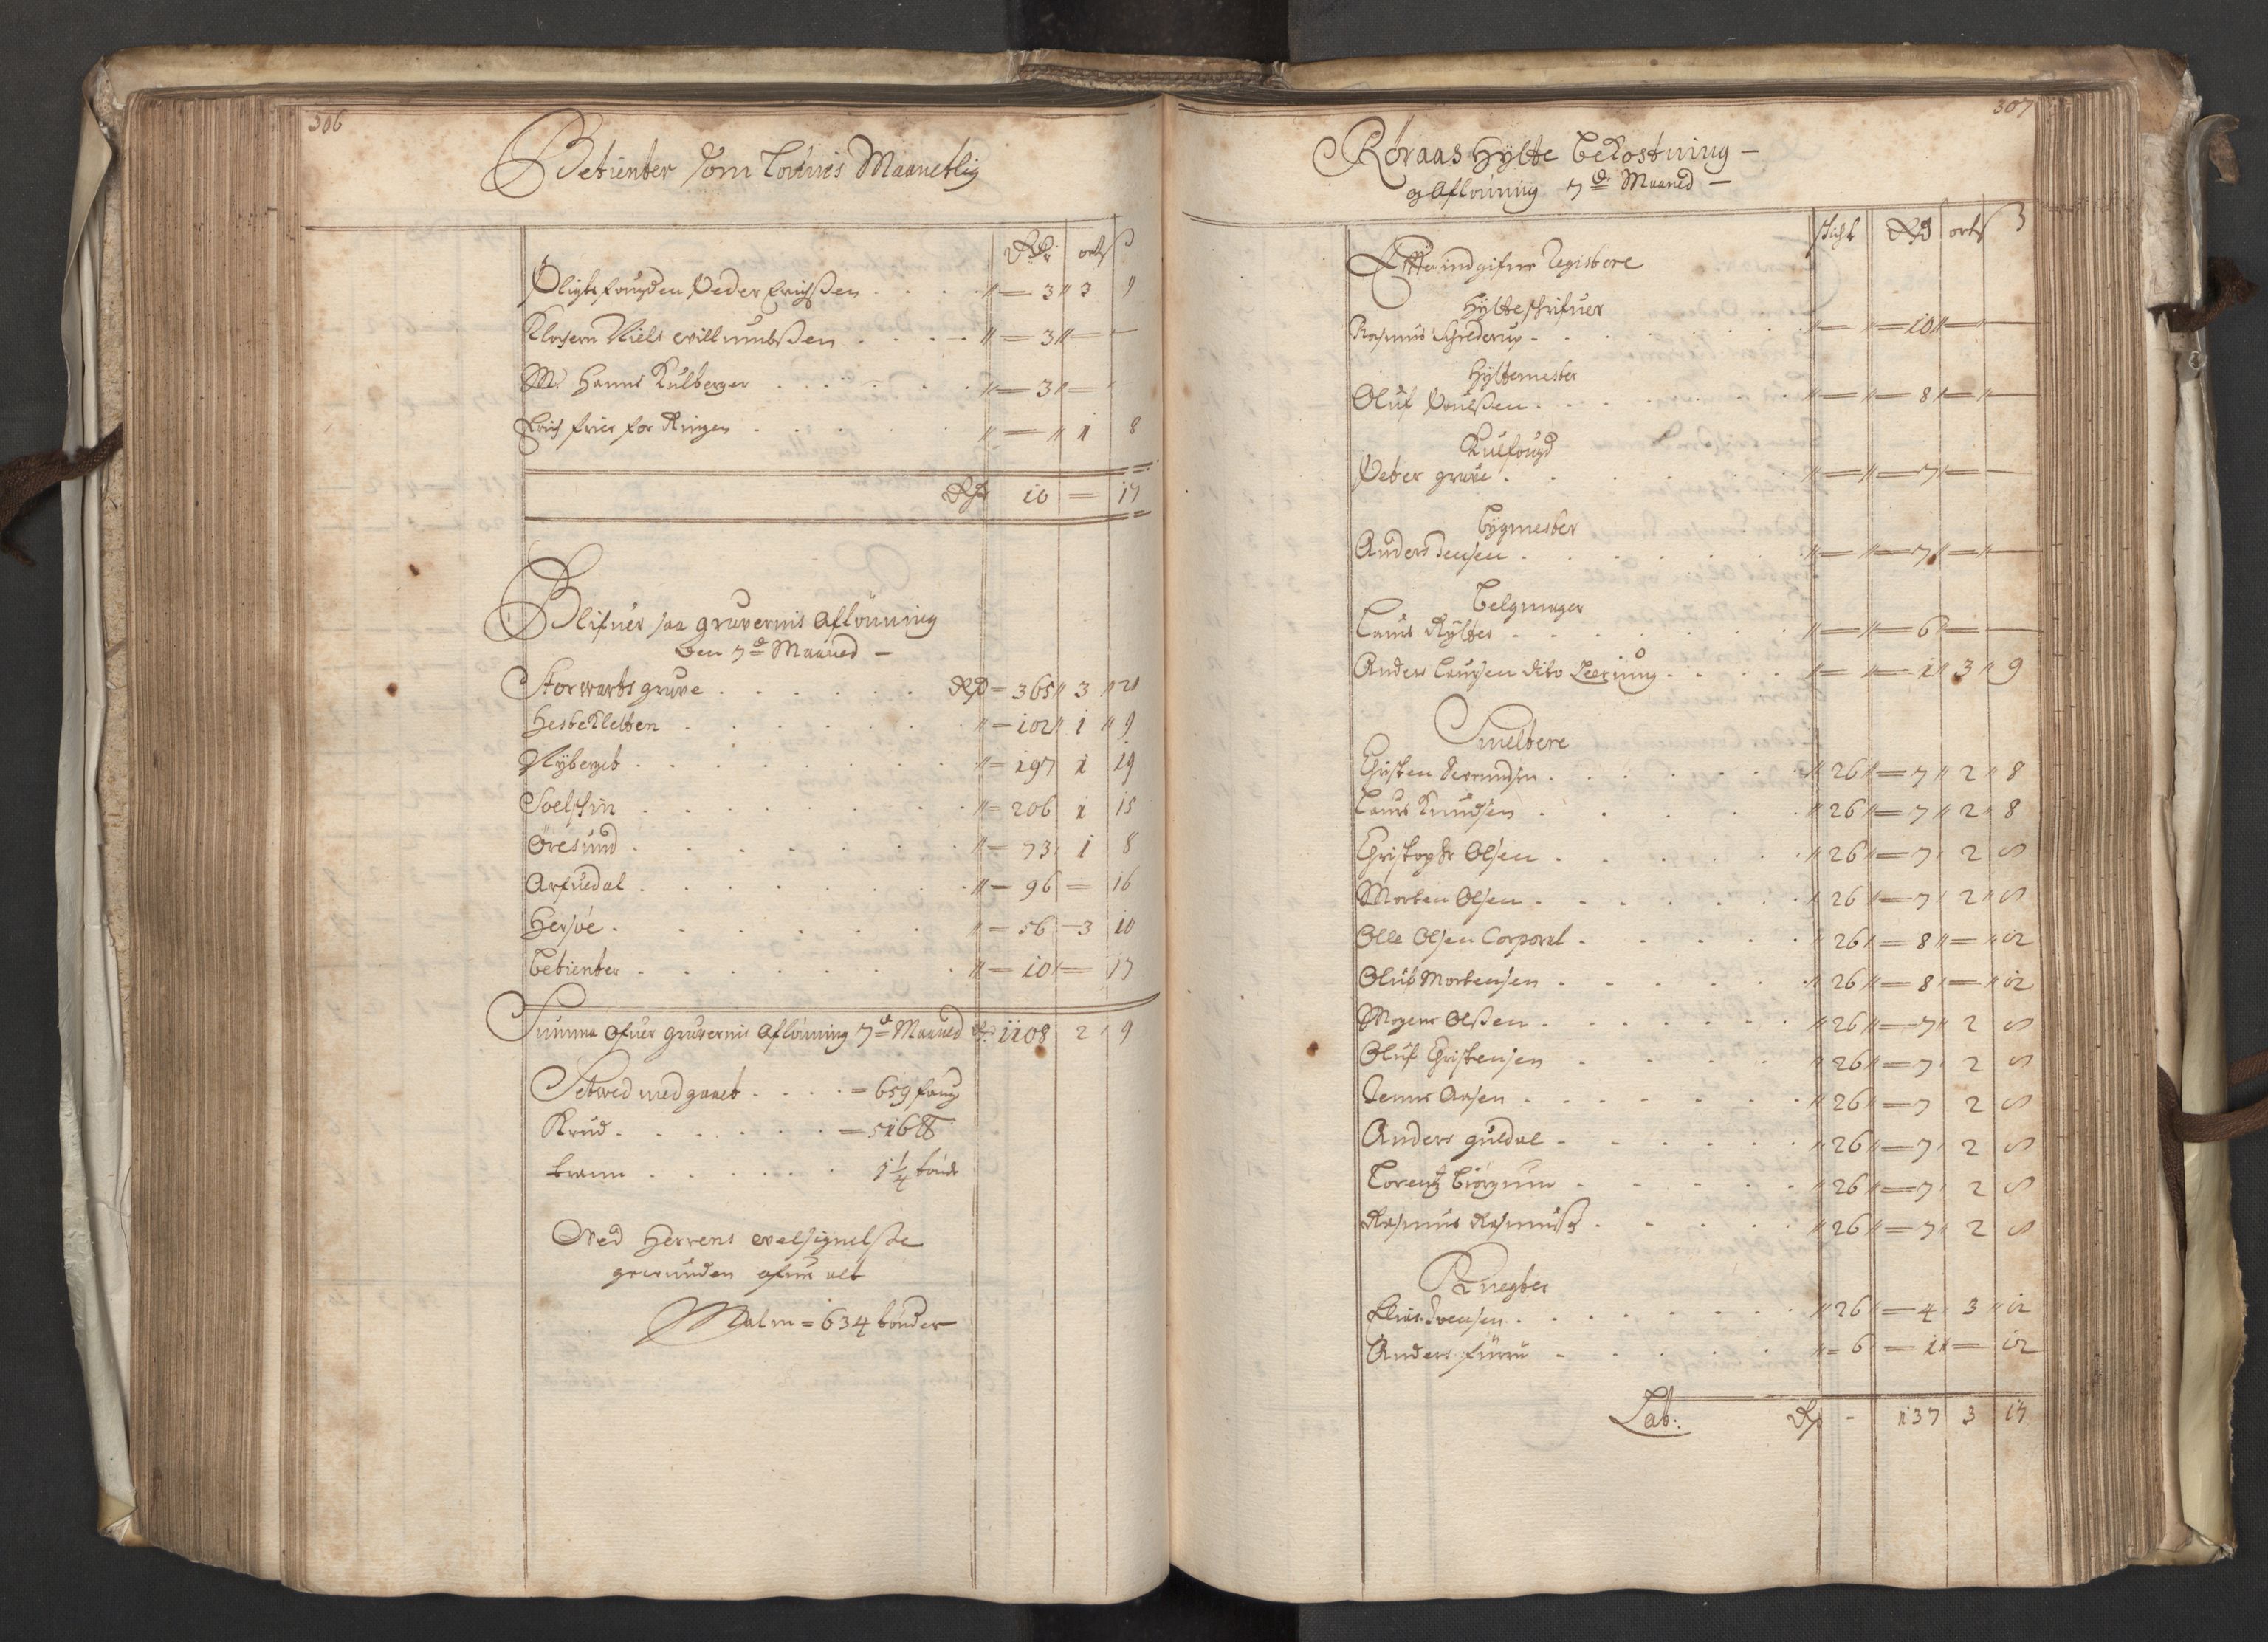 306
Betienter som Lönnes Maanetlig
Rdr ort ß
Pligtfougden Peder Erichßen . . . . " — 3 " 3 9
Klochern Niels Willumbßen . . . . " — 3 " — —
Mr Hanns Kulberger . . . . . " — 3 " —
Erich friis for Ringen . . . . . " — " 1 8
Rdr 10 — 17
Blifuer saa gruvernis Aflönning
den 7de Maaned —
Storwarts gruve . . . . . . Rdr = 365 " 3 " 20
Hestekletten . . . . . . . " = 102 " 1 " 9
Nÿberget . . . . . . . . " = 197 1 19
Soelskin . . . . . . . . " = 206 1 15
Öresund . . . . . . . . " = 73 1 8
Arfuedal . . . . . . . . " — 96 — 16
Hersöe . . . . . . . " = 56 — 3 10
Betienter . . . . . . . " = 10 " — 17
Summa ofuer gruvernis Aflönning 7de Maaned Rdr 1108 2 9
Setwed medgaaet . . . . = 659 fang
Krud . . . . . . = 516 ℔
tran . . . . . . 1 1/4 tönde
Ved Herrens velsignelße
gewunden ofuer alt
Malm = 634 tönder
307
Röraas Hÿtte bekostning —
og Aflönning 7de Maaned —
schicht Rdr ort ß
Efter indgifne Registere
Hÿtteschrifuer
Rasmus Schielderup . . . . " — " — 10 " — —
Hÿttemester
Oluf Poulßen . . . . . . " — " — 8 " — " —
Kulfougd
Peter gruve . . . . . " — " — 7 " — —
Bÿgmester
Anders Jensen . . . . . . " — " — 7 " — " —
Belgmager
Laurs Rÿtter . . . . . . " — " — 6 " — —
Anders Laursen dito Leerjung . . . . " — " — 1 " 3 " 9
Smeltere
Christen Iverundsen . . . . . . " 26 " — 7 " 2 " 8
Laurs Knudsen . . . . . " 26 " — 7 " 2 " 8
Christopher Olsen . . . . . . " 26 " — 7 " 2 8
Morten Olsen . . . . . . . " 26 " — 7 " 2 " 8
Olle Olsen Corporal . . . . . " 26 " — 8 " — " 12
Oluf Mortensen . . . . . . " 26 " — 8 " — " 12
Mogens Olßen . . . . . . . " 26 " — 7 " 2 8
Oluf Christensen . . . . . " 26 " — 7 " 2 8
Jenns Aasen . . . . . . . " 26 " — 7 2 8
Anders guldal . . . . . . " 26 " — 7 " 2 8
Lorentz Biörgum . . . . . " 26 " — 7 " 2 8
Rasmus Rasmusß . . . . . " 26 " — 7 " 2 8
Knegter
Elias Svensen . . . . . . " 26 " — 4 3 " 12
Anders furru . . . . . " = 6 — 1 " — 12
Lat: Rdr — 137 3 17